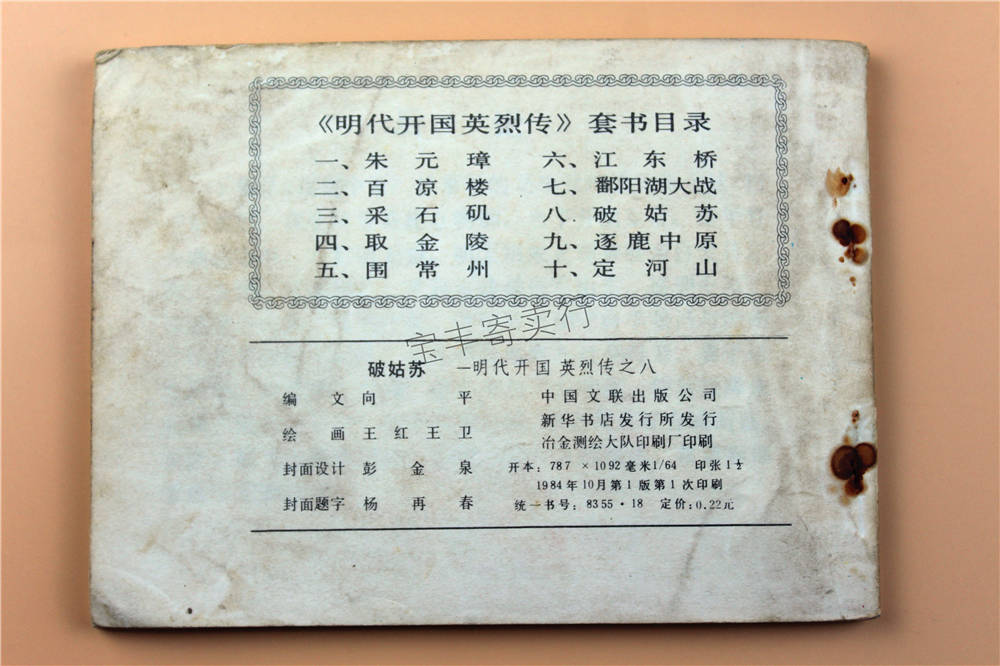 《明代开国英烈传》套书目录
一、朱元璋 六、江东桥
二、百凉楼 七、鄱阳湖大战
三、采石矶 八、破姑苏
四、取金陵 九、逐鹿中原
五、围常州 十、定河山
宝丰寄卖行
破姑苏 —明代开国英烈传之八
编文 向平 中国文联出版公司
新华书店发行所发行
绘画 王红 王卫 冶金测绘大队印刷厂印刷
封面设计 彭金泉 开本：787×1092毫米1/64 印张1½
1984年10月第1版第1次印刷
封面题字 杨再春 统一书号：8355·18 定价：0.22元